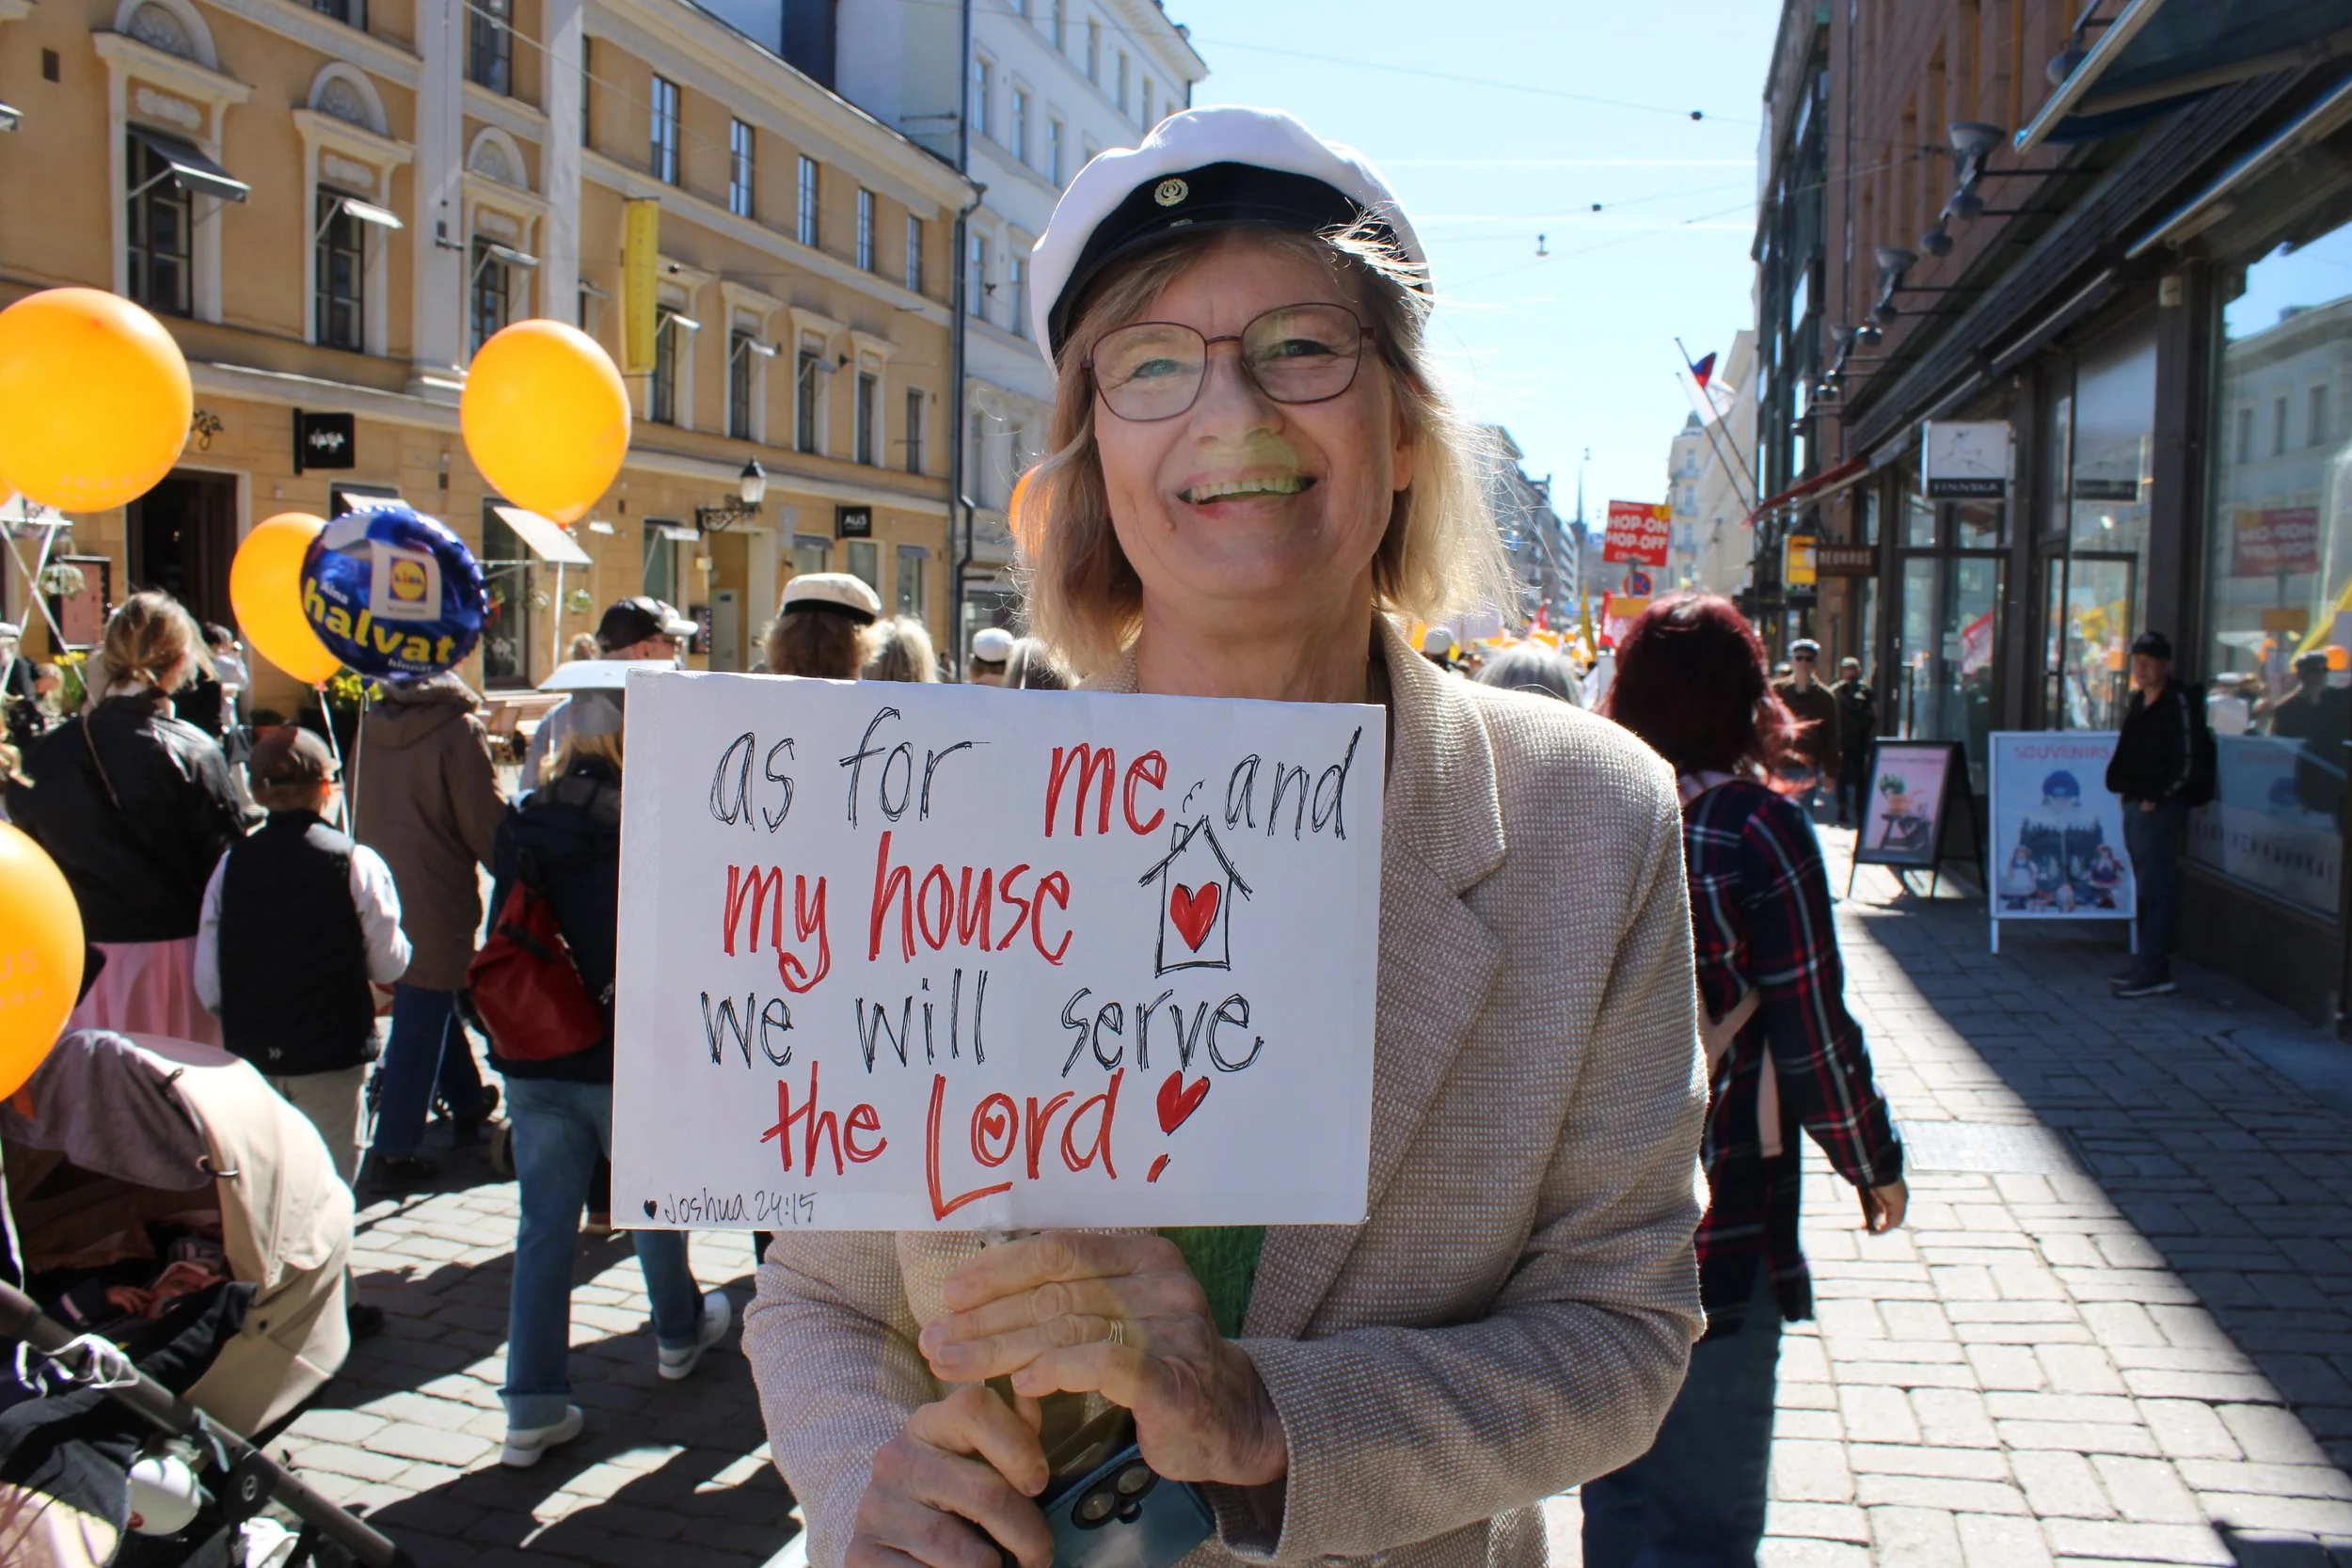 as for me and
my house
we will serve
the Lord!
Joshua 24:15
Aina
halvat
hinnat
LIDL
HOP-ON
HOP-OFF
FINNSKA
NEUHAUS
SOUVENIRS